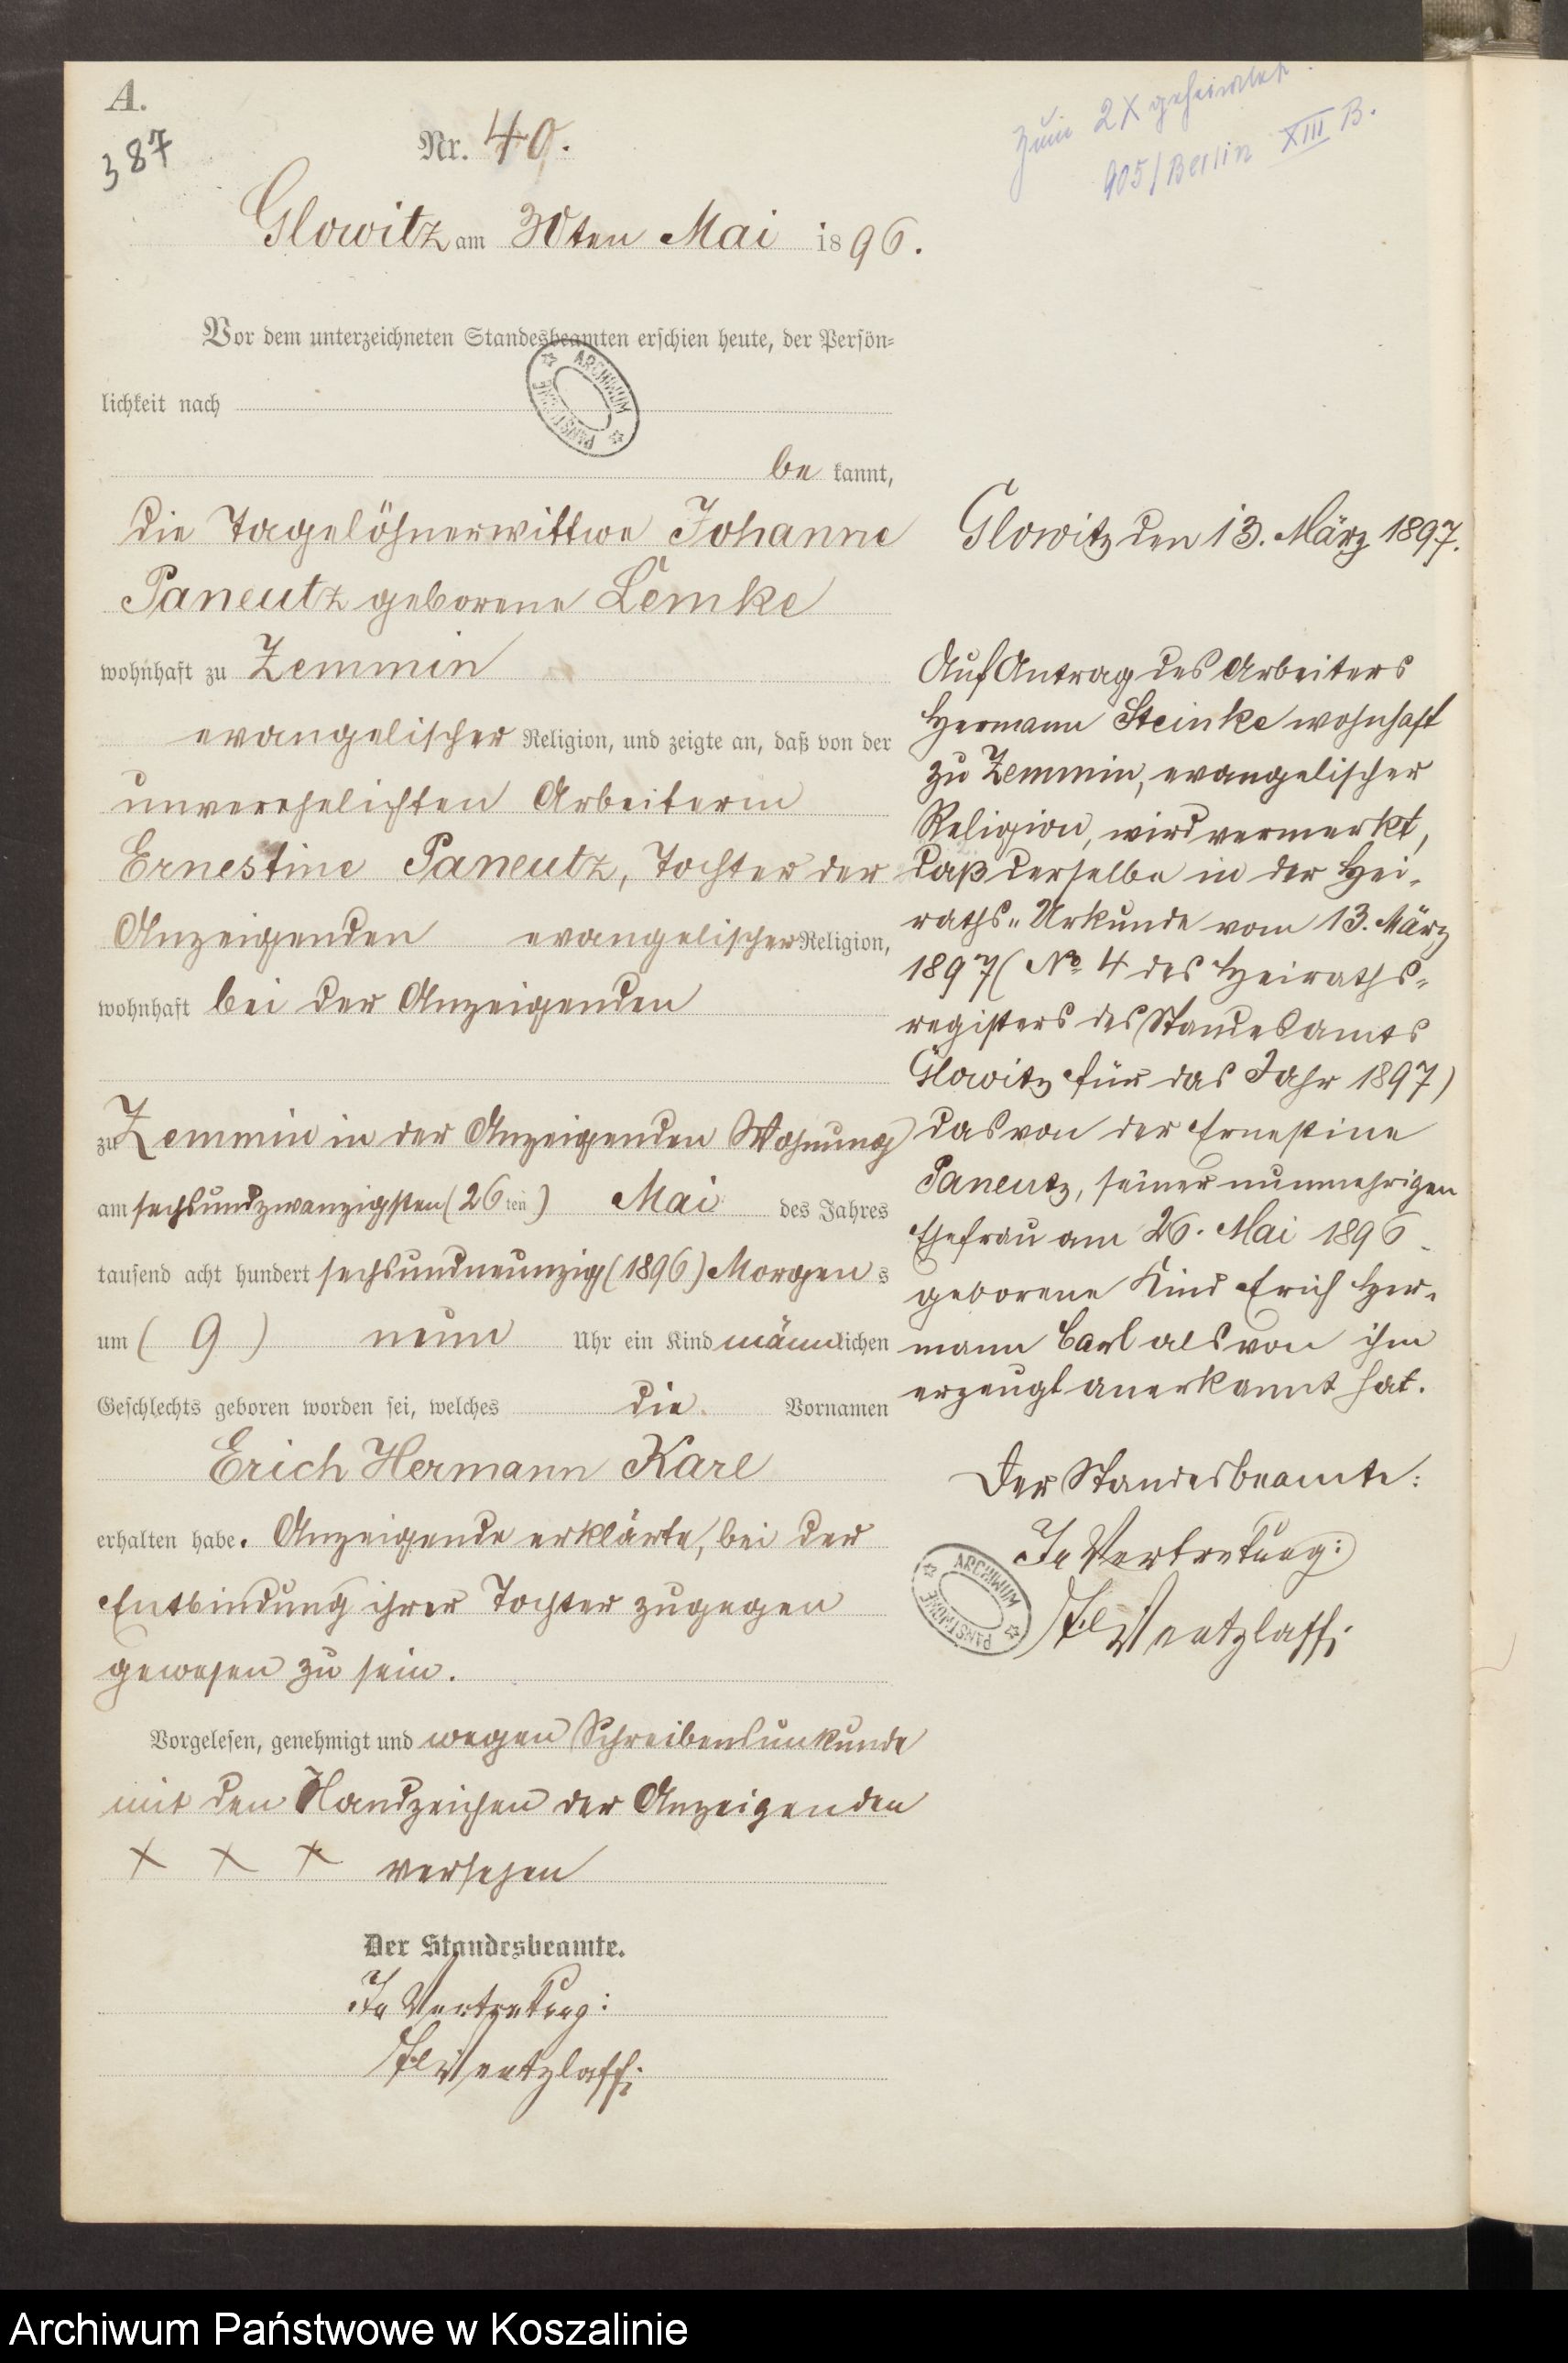 A.
387
Nr. 40.
Glowitz am 30ten Mai 1896.
2X
905/Berlin XIII B.
Vor dem unterzeichneten Standesbeamten erschien heute, der Persön=
lichkeit nach
ARCHIWUM PAŃSTWOWE
be kannt,
die Tagelöhnerwittwe Johanne
Paneutz geborene Lemke
wohnhaft zu Zemmin
evangelischer Religion, und zeigte an, daß von der
unverehelichten Arbeiterin
Ernestine Paneutz, Tochter der
Anzeigenden evangelischer Religion,
wohnhaft bei der Anzeigenden
zu Zemmin in der Anzeigenden Wohnung
am sechsundzwanzigsten (26ten) Mai des Jahres
tausend acht hundert sechsundneunzig (1896) Morgens
um ( 9 ) neun Uhr ein Kind männlichen
Geschlechts geboren worden sei, welches die Vornamen
Erich Hermann Karl
erhalten habe. Anzeigende erklärte, bei der
Entbindung ihrer Tochter zugegen
gewesen zu sein.
Vorgelesen, genehmigt und wegen Schreibensunkunde
mit den Handzeichen der Anzeigenden
X X X versehen
Der Standesbeamte.
In Vertretung:
Wentzlaff.
Glowitz den 13. März 1897.
Auf Antrag des Arbeiters
Hermann Steinke wohnhaft
zu Zemmin, evangelischer
Religion, wird vermerkt,
daß derselbe in der Hei-
raths-Urkunde vom 13. März
1897 (No 4 des Heiraths-
registers des Standesamts
Glowitz für das Jahr 1897)
das von der Ernestine
Paneutz, seiner nunmehrigen
Ehefrau am 26. Mai 1896
geborene Kind Erich Her-
mann Carl als von ihm
erzeugt anerkannt hat.
Der Standesbeamte:
In Vertretung:
Wentzlaff.
ARCHIWUM PAŃSTWOWE
Archiwum Państwowe w Koszalinie